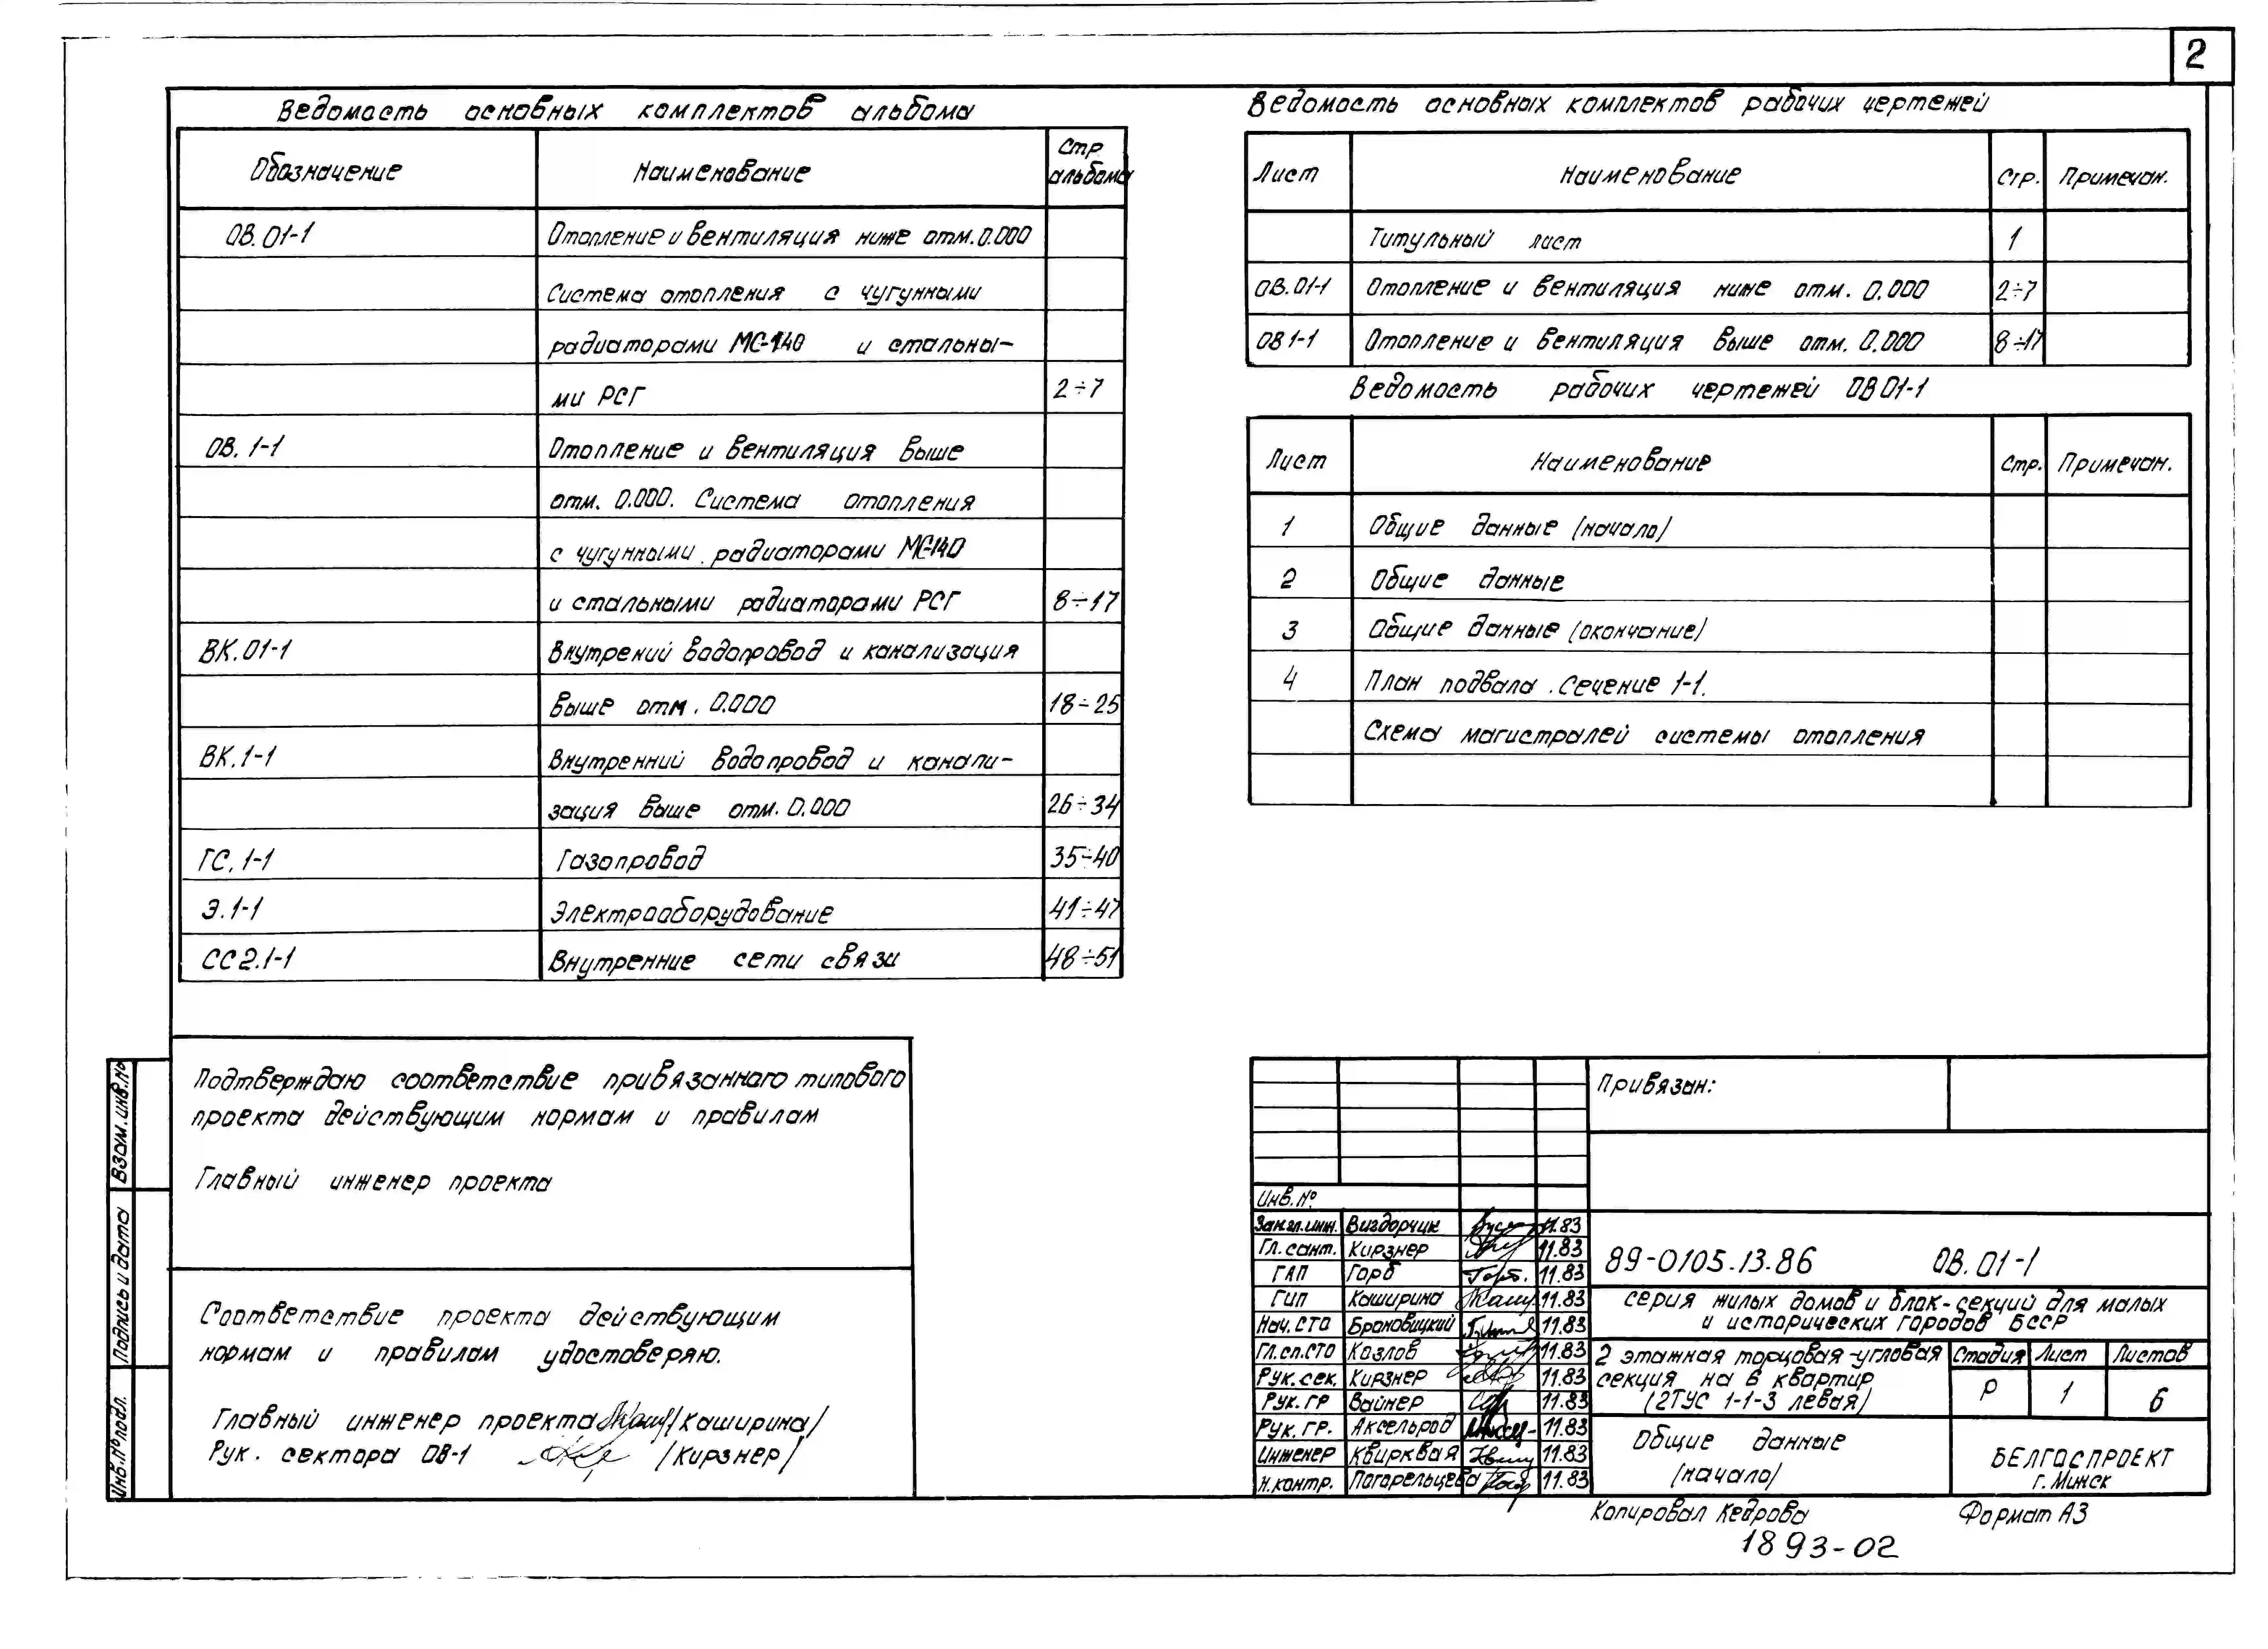 2
Ведомость основных комплектов альбома
Обозначение Наименование Стр. альбома
ОВ.01-1 Отопление и вентиляция ниже отм.0.000
Система отопления с чугунными
радиаторами МС-140 и стальны-
ми РСГ 2÷7
ОВ. 1-1 Отопление и вентиляция выше
отм. 0.000. Система отопления
с чугунными радиаторами МС-140
и стальными радиаторами РСГ 8÷17
ВК.01-1 Внутрений водопровод и канализация
выше отм. 0.000 18÷25
ВК.1-1 Внутренний водопровод и канали-
зация выше отм. 0.000 26÷34
ГС.1-1 Газопровод 35÷40
Э.1-1 Электрооборудование 41÷47
СС2.1-1 Внутренние сети связи 48÷51
Ведомость основных комплектов рабочих чертежей
Лист Наименование Стр. Примечан.
Титульный лист 1
ОВ.01-1 Отопление и вентиляция ниже отм. 0.000 2÷7
ОВ 1-1 Отопление и вентиляция выше отм. 0.000 8÷17
Ведомость рабочих чертежей ОВ 01-1
Лист Наименование Стр. Примечан.
1 Общие данные (начало)
2 Общие данные
3 Общие данные (окончание)
4 План подвала. Сечение 1-1.
Схема магистралей системы отопления
Подтверждаю соответствие привязанного типового
проекта действующим нормам и правилам
Главный инженер проекта
Соответствие проекта действующим
нормам и правилам удостоверяю.
Главный инженер проекта /Каширина/
Рук. сектора ОВ-1 /Кирзнер/
Взам.инв.№
Подпись и дата
Инв.№ подл.
Привязан:
Инв.№
Зам.гл.инж. Виздорчик 11.83
Гл. сант. Кирзнер 11.83
ГАП Горб 11.83
ГИП Каширина 11.83
Нач. СТО Броновицкий 11.83
Гл.сп.СТО Козлов 11.83
Рук. сек. Кирзнер 11.83
Рук. гр Вайнер 11.83
Рук. гр. Аксельрод 11.83
Инженер Квирквая 11.83
Н.контр. Погарельцева 11.83
89-0105.13.86 ОВ. 01-1
серия жилых домов и блок-секций для малых
и исторических городов БССР
2 этажная торцовая-угловая
секция на 6 квартир
(2ТУС 1-1-3 левая)
Стадия Лист Листов
Р 1 6
Общие данные
(начало)
БЕЛГОСПРОЕКТ
г. Минск
Копировал Кедрова Формат А3
1893-02